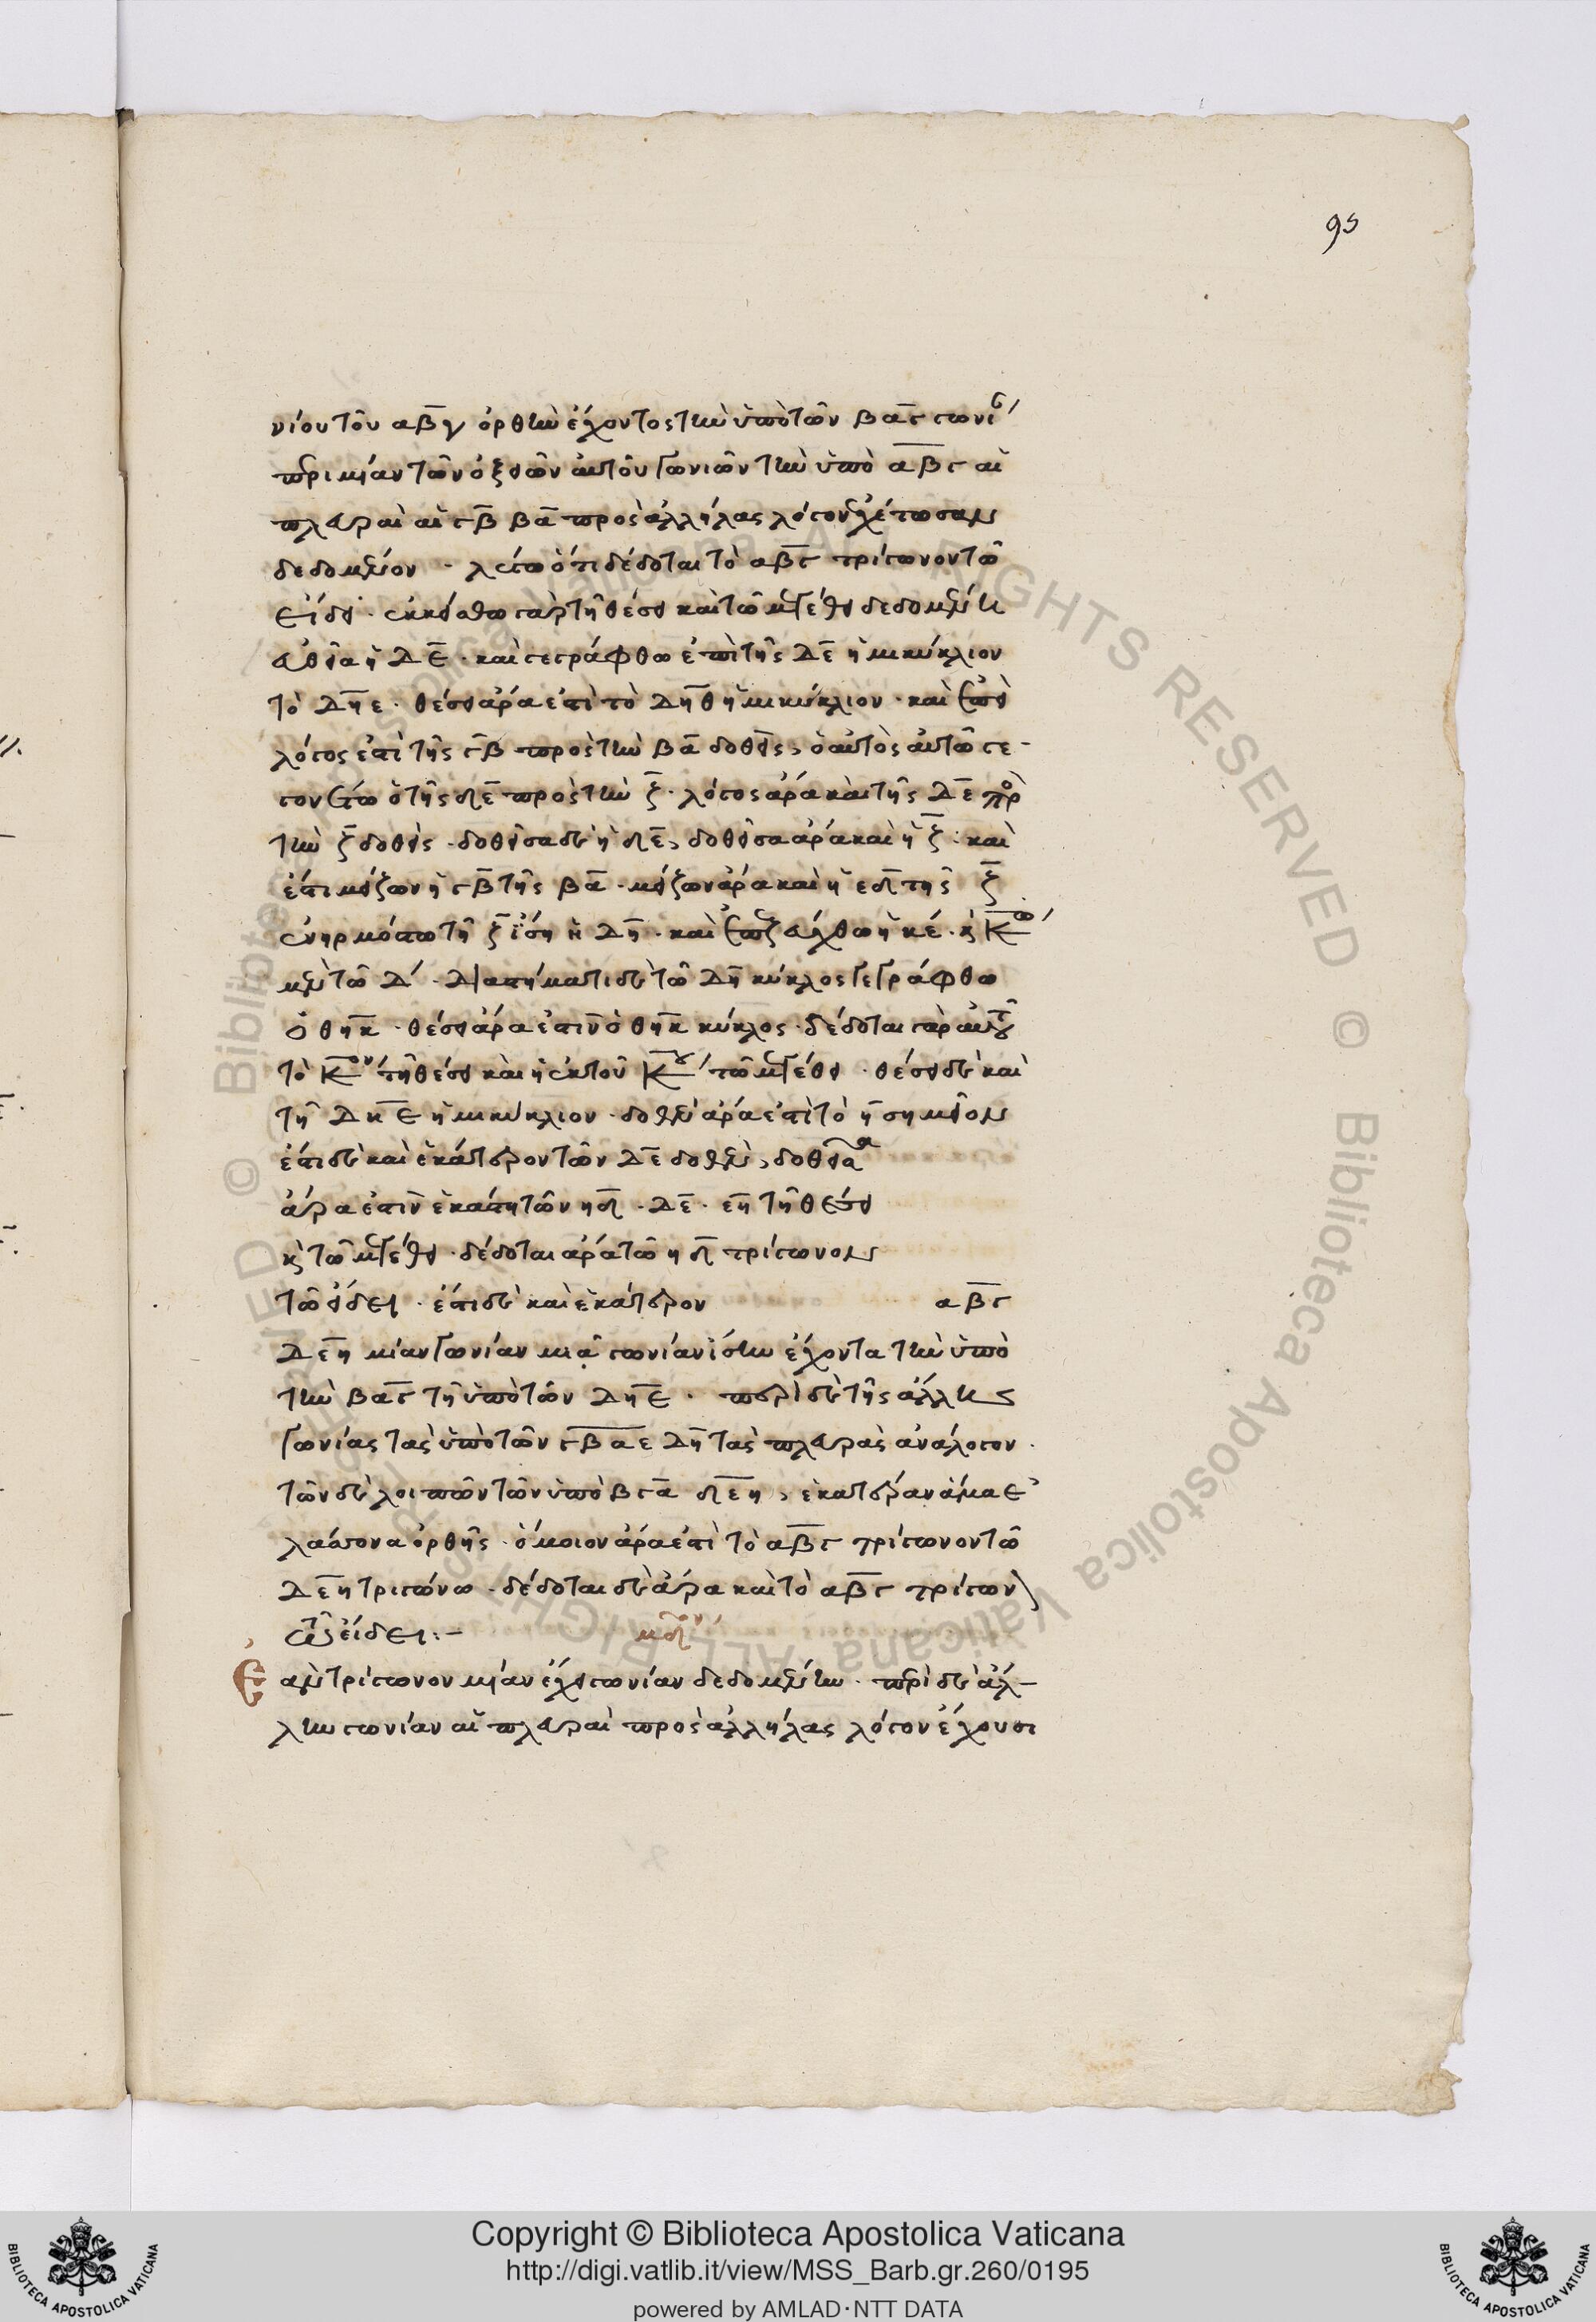 95
νίου τοῦ αβγ ὀρθὴν ἔχοντος τὴν ὑπὸ τῶν βαγ γωνί
περι μίαν τῶν ὀξειῶν αὐτοῦ γωνιῶν τὴν ὑπὸ αβγ αἱ
πλευραὶ αἱ γβ βα προς ἀλλήλας λόγον ἐχέτωσαν
δεδομένον · λέγω ὅτι δέδοται τὸ αβγ τρίγωνον τῶ
εἴδει · ἐκκείσθω γὰρ τῆ θέσει καὶ τῶ μεγέθει δεδομένη
εὐθεῖα ἡ δε · και γεγράφθω ἐπὶ τῆς δε ἡμικύκλιον
τὸ δηε · θέσει ἄρα ἐστὶ τὸ δηθ ἡμικύκλιον · καὶ ἐπεὶ
λόγος ἐστὶ τῆς γβ προς τὴν βα δοθείς, ὁ αὐτὸς αὐτῶ γε-
γονέτω ὁ τῆς δε προς τὴν ζ · λόγος ἄρα καὶ τῆς δε πρὸ
τὴν ζ δοθείς · δοθεῖσα δὲ ἡ δε, δοθεῖσα ἄρα καὶ ἡ ζ · καὶ
ἐστι μείζων ἡ γβ τῆς βα · μείζων ἄρα καὶ ἡ εδ τῆς ζ
ἐνηρμόστω τῆ ζ ἴση ἡ δη · καὶ ἐπεζεύχθω ἡ κέ · κ κω
μὲν τῶ δ · διαστήματι δὲ τῶ δη κύκλος γεγράφθω
ὁ θηκ · θέσει ἄρα ἐστὶν ὁ θηκ κύκλος · δέδοται γὰρ αὐτοῦ
τὸ κον τῆ θέσει καὶ ἡ ἐκ τοῦ κου τῶ μεγέθει · θέσει δὲ καὶ
τῆ δκε ἡμικύκλιον · δοθὲν ἄρα ἐστὶ τὸ η σημεῖον
ἐστι δὲ καὶ ἑκάτερον τῶν δε δοθέν, δοθεῖσα
ἄρα ἐστὶν ἑκάστη τῶν ηδ · δε · εη τῆ θέσει
κ τῶ μεγέθει · δέδοται ἄρα τῶ ηδ τρίγωνον
τῶ εἴδει · ἐστι δὲ καὶ ἑκάτερον αβγ
δεη μίαν γωνίαν μιᾶ γωνίαν ἴσην ἔχοντα τὴν ὑπὸ
τὴν βαγ τῆ ὑπὸ τῶν δηε · περὶ δὲ τῆς ἄλλης
γωνίας τας ὑπὸ τῶν γβα εδη τας πλευρας ἀνάλογον ·
τῶν δὲ λοιπῶν τῶν ὑπὸ βγα δεη, ἑκατέραν ἅμα ἐ
λάσσονα ὀρθῆς · ὅμοιον ἄρα ἐστὶ τὸ αβγ τρίγωνον τῶ
δεη τριγώνω · δέδοται δὲ ἄρα καὶ τὸ αβγ τρίγων
εἴδει :-
Εαν τρίγωνον μίαν ἔχει γωνίαν δεδομένην · περὶ δὲ ἄλ-
λην γωνίαν αἱ πλευραὶ προς ἀλλήλας λόγον ἔχουσι
Copyright © Biblioteca Apostolica Vaticana
http://digi.vatlib.it/view/MSS_Barb.gr.260/0195
powered by AMLAD·NTT DATA